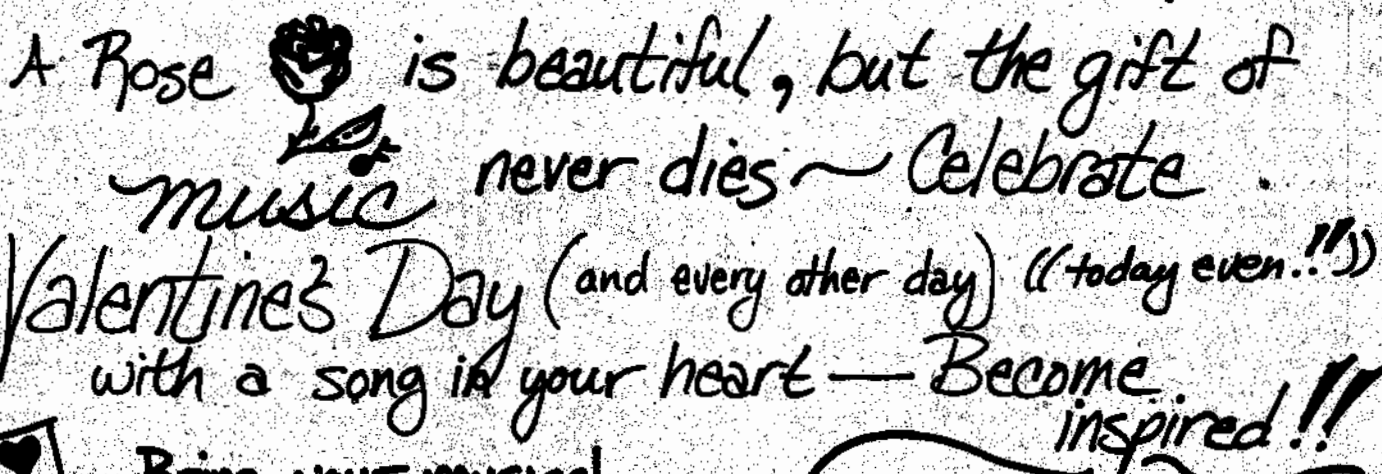 A Rose is beautiful, but the gift of
music never dies ~ Celebrate
Valentine's Day (and every other day) ((today even!!))
with a song in your heart — Become
inspired!!
your musical